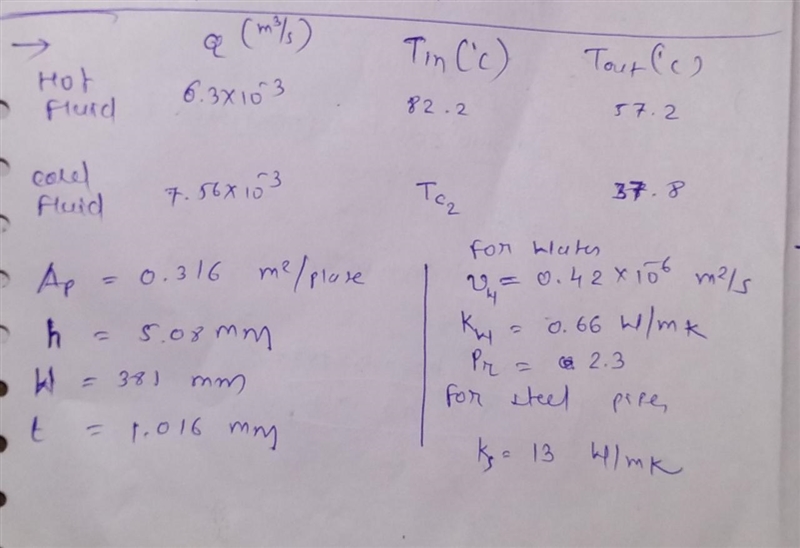 → Q (m³/s) Tin (°C) Tout (°C)
Hot fluid 6.3×10⁻³ 82.2 57.2
cold fluid 7.56×10⁻³ Tc₂ 37.8
Ap = 0.316 m²/plate
h = 5.08 mm
W = 381 mm
t = 1.016 mm
for water
ν = 0.42 × 10⁻⁶ m²/s
Kw = 0.66 W/mK
Pr = 2.3
for steel pipe,
Ks = 13 W/mK